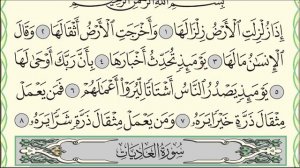 بِسْمِ ٱللَّهِ ٱلرَّحْمَٰنِ ٱلرَّحِيمِ
إِذَا زُلْزِلَتِ ٱلْأَرْضُ زِلْزَالَهَا ١ وَأَخْرَجَتِ ٱلْأَرْضُ أَثْقَالَهَا ٢ وَقَالَ
ٱلْإِنسَٰنُ مَا لَهَا ٣ يَوْمَئِذٍ تُحَدِّثُ أَخْبَارَهَا ٤ بِأَنَّ رَبَّكَ أَوْحَىٰ لَهَا
٥ يَوْمَئِذٍ يَصْدُرُ ٱلنَّاسُ أَشْتَاتًا لِّيُرَوْا۟ أَعْمَٰلَهُمْ ٦ فَمَن يَعْمَلْ
مِثْقَالَ ذَرَّةٍ خَيْرًا يَرَهُۥ ٧ وَمَن يَعْمَلْ مِثْقَالَ ذَرَّةٍ شَرًّا يَرَهُۥ ٨
سُورَةُ العَادِيَاتِ